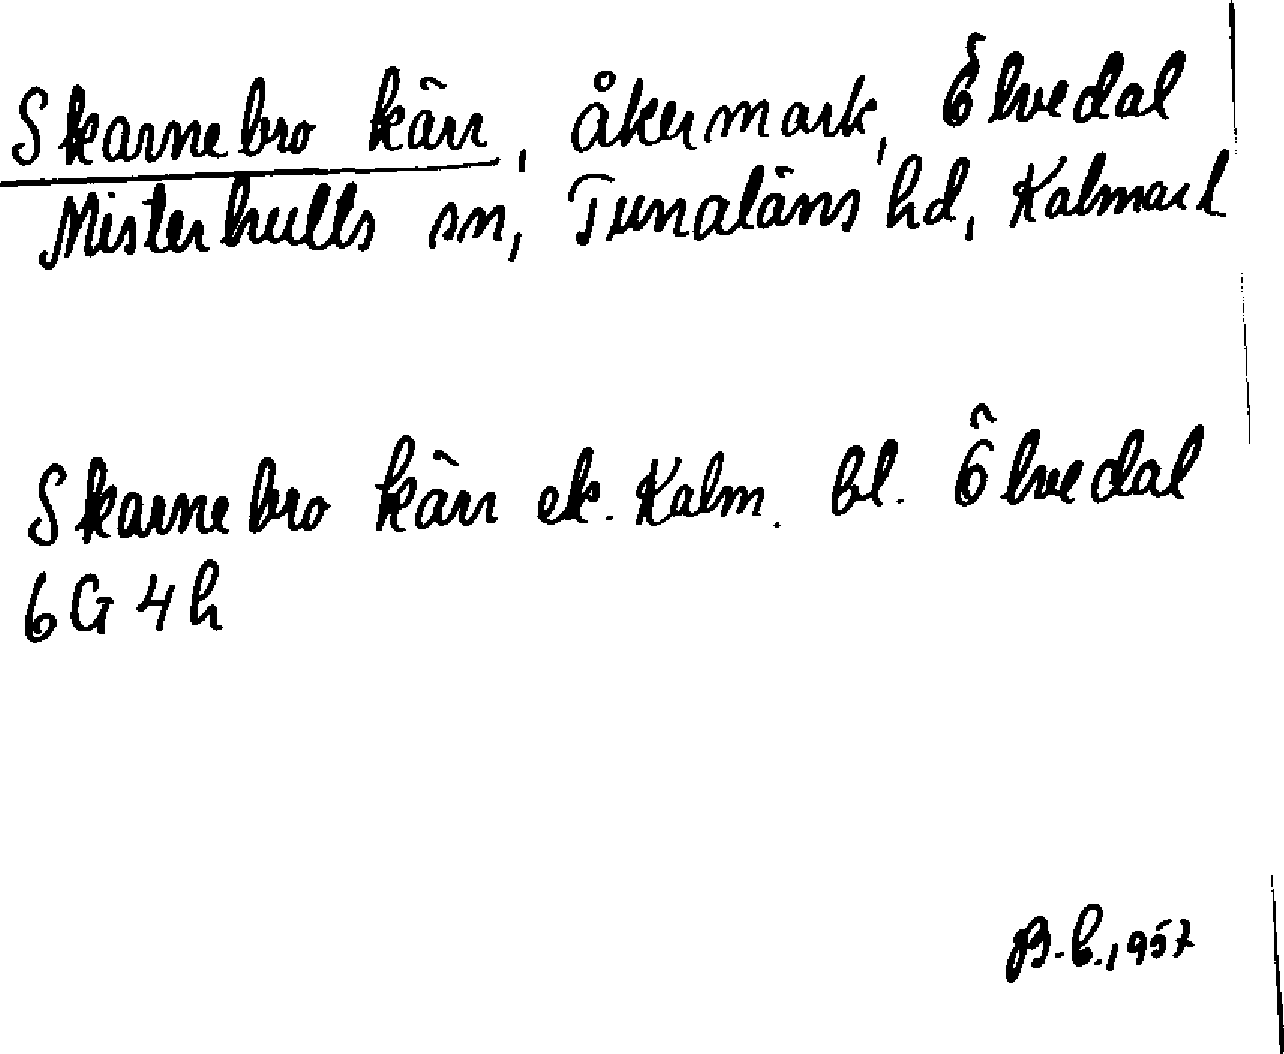 Skarnebro kärr, åkermark, Ölvedal
Misterhults sn, Tunaläns hd, Kalmar l
Skarnebro kärr ek. Kalm. bl. Ölvedal
6G 4h
B.L. 1957